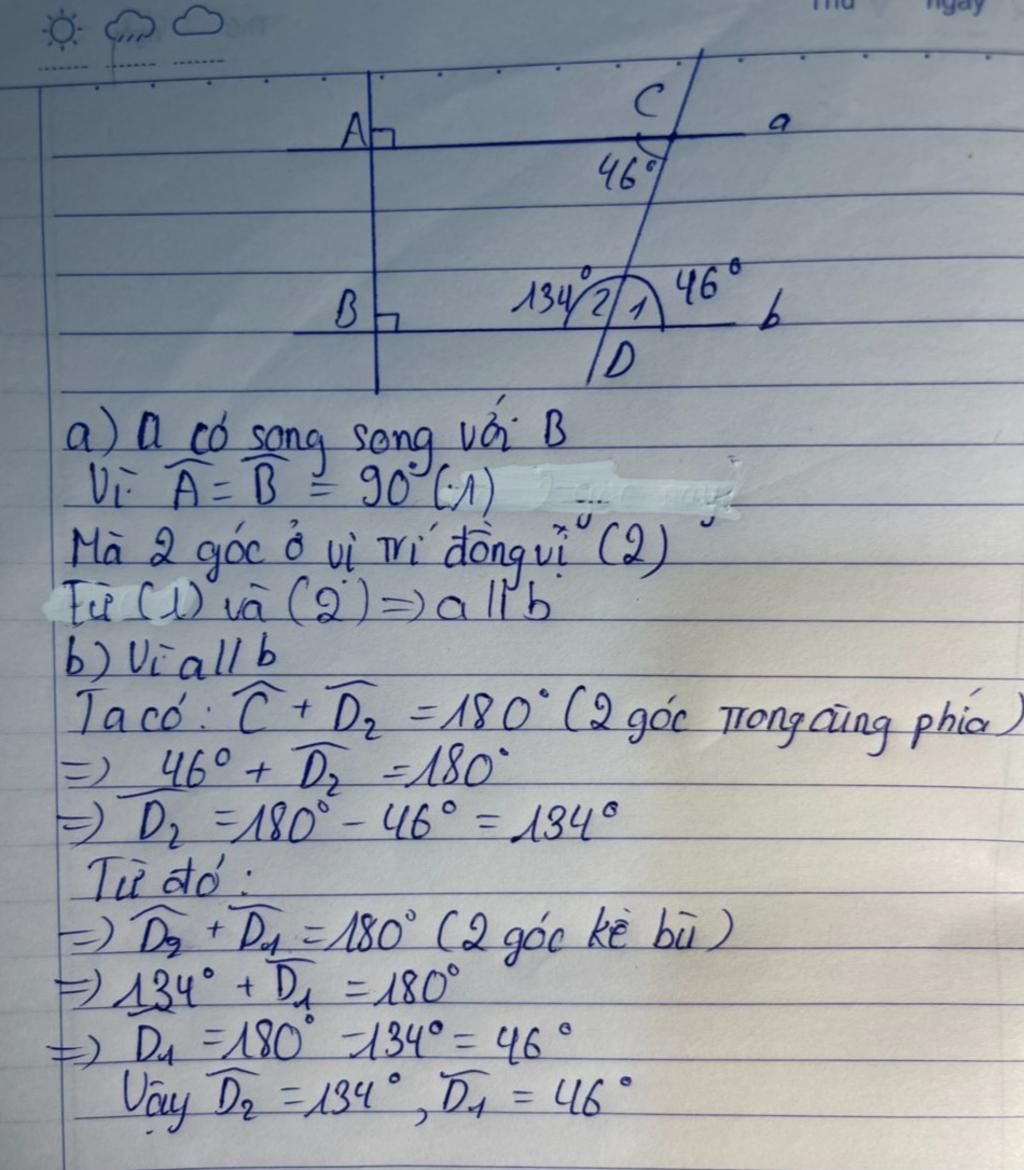 Thứ ngày
A
C
a
46°
B
134°
2
1
46°
b
D
a) a có song song với B
Vì \widehat{A} = \widehat{B} = 90° (1)
Mà 2 góc ở vị trí đồng vị (2)
Từ (1) và (2) => a // b
b) Vì a // b
Ta có : \widehat{C} + \widehat{D_2} = 180° (2 góc trong cùng phía)
=> 46° + \widehat{D_2} = 180°
=> \widehat{D_2} = 180° - 46° = 134°
Từ đó :
=> \widehat{D_2} + \widehat{D_1} = 180° (2 góc kề bù)
=> 134° + \widehat{D_1} = 180°
=> \widehat{D_1} = 180° - 134° = 46°
Vậy \widehat{D_2} = 134°, \widehat{D_1} = 46°